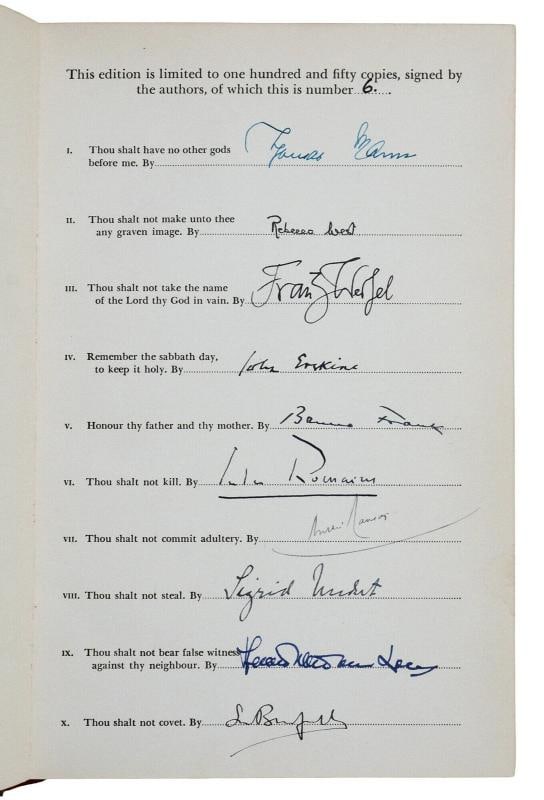 This edition is limited to one hundred and fifty copies, signed by
the authors, of which this is number 6.
I. Thou shalt have no other gods
before me. By Thomas Mann
II. Thou shalt not make unto thee
any graven image. By Rebecca West
III. Thou shalt not take the name
of the Lord thy God in vain. By Franz Werfel
IV. Remember the sabbath day,
to keep it holy. By John Erskine
V. Honour thy father and thy mother. By Bruno Frank
VI. Thou shalt not kill. By Jules Romains
VII. Thou shalt not commit adultery. By
VIII. Thou shalt not steal. By Sigrid Undset
IX. Thou shalt not bear false witness
against thy neighbour. By
X. Thou shalt not covet. By